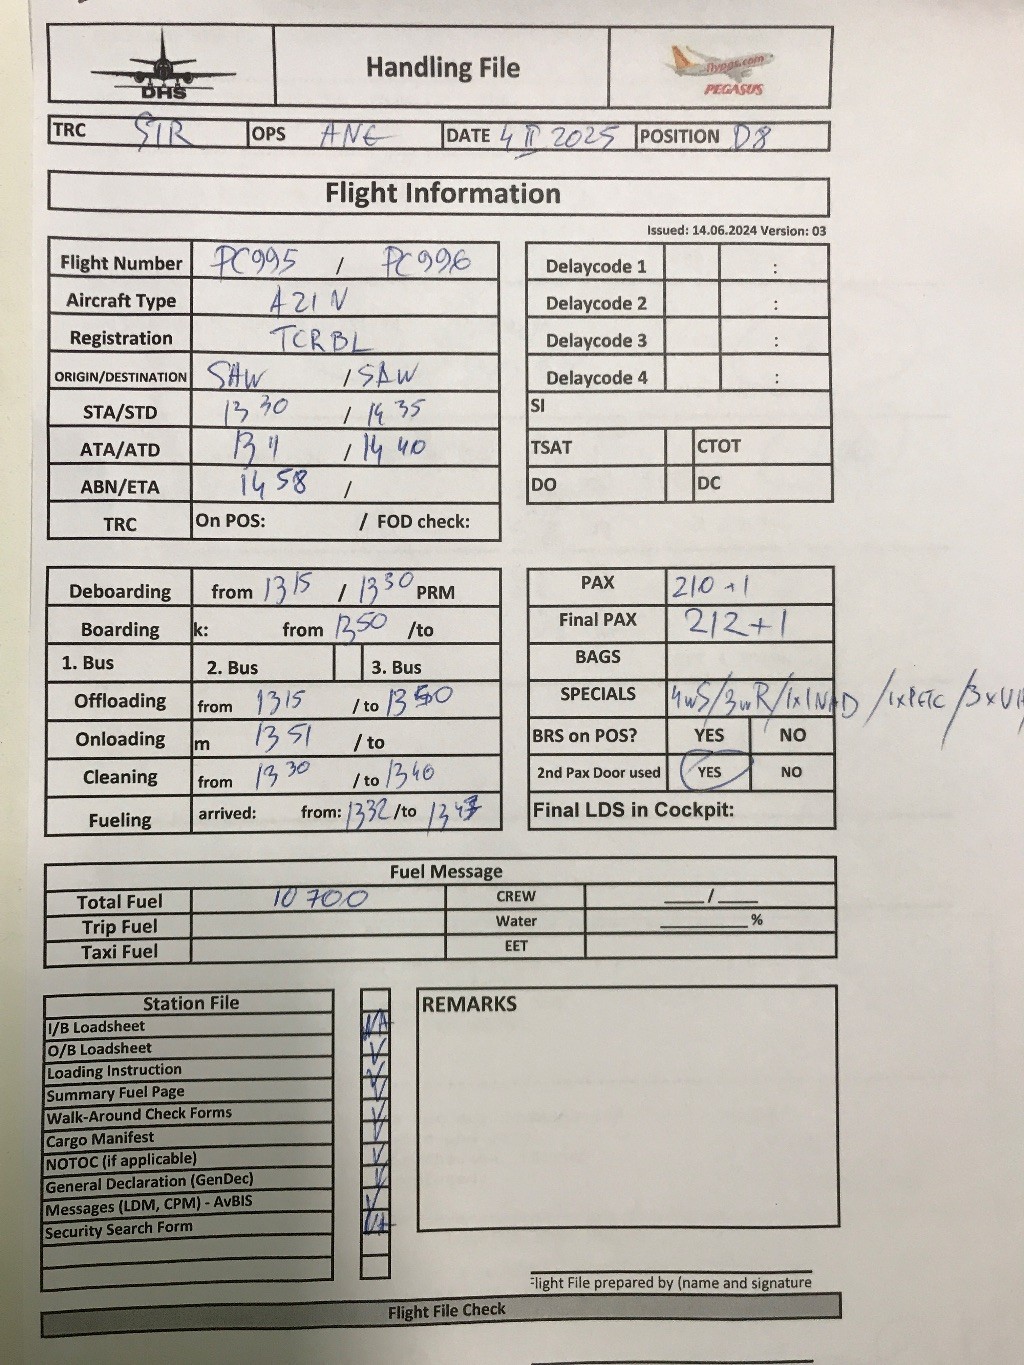 DHS
Handling File
flypgs.com
PEGASUS
TRC STR OPS ANE DATE 4 II 2025 POSITION D8
Flight Information
Issued: 14.06.2024 Version: 03
Flight Number PC995 / PC996
Aircraft Type A21N
Registration TCRBL
ORIGIN/DESTINATION SAW / SAW
STA/STD 13 30 / 14 35
ATA/ATD 13 11 / 14 40
ABN/ETA 14 58 /
TRC On POS: / FOD check:
Delaycode 1 :
Delaycode 2 :
Delaycode 3 :
Delaycode 4 :
SI
TSAT CTOT
DO DC
Deboarding from 13 15 / 13 30 PRM
Boarding k: from 1350 /to
1. Bus 2. Bus 3. Bus
Offloading from 1315 / to
Onloading m 13 51 / to
Cleaning from 13 30 / to 1340
Fueling arrived: from: 1332 /to
PAX 210 +1
Final PAX 212+1
BAGS
SPECIALS 4wS/3wR/1xINAD /1xPETC /3x
BRS on POS? YES NO
2nd Pax Door used YES NO
Final LDS in Cockpit:
Fuel Message
Total Fuel 10 700 CREW ___/___
Trip Fuel Water ______%
Taxi Fuel EET
Station File
I/B Loadsheet
O/B Loadsheet
Loading Instruction
Summary Fuel Page
Walk-Around Check Forms
Cargo Manifest
NOTOC (if applicable)
General Declaration (GenDec)
Messages (LDM, CPM) - AvBIS
Security Search Form
REMARKS
Flight File prepared by (name and signature
Flight File Check